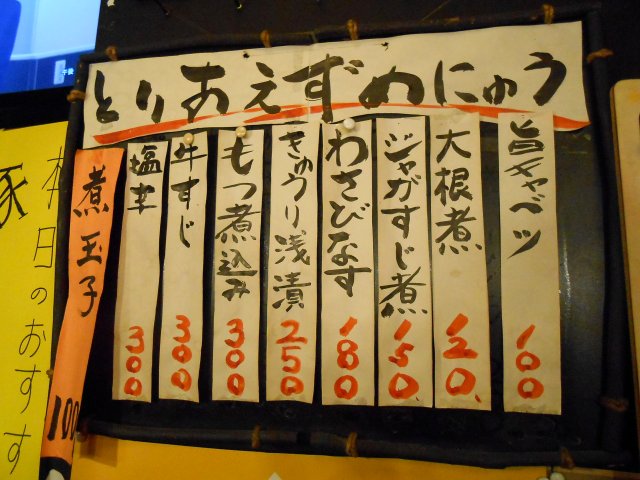 とりあえずめにゅう
旨キャベツ
100
大根煮
120
ジャガすじ煮
150
わさびなす
180
きゅうり浅漬
250
もつ煮込み
300
牛すじ
300
塩辛
300
煮玉子
100
本日のおすす
豚